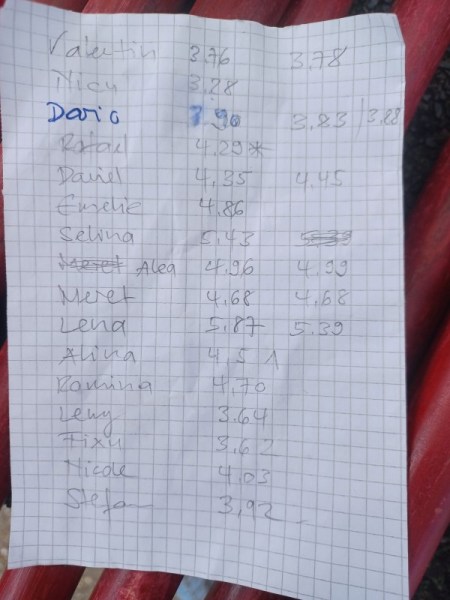 Valentin 3.76 3.78
Nicu 3.28
Dario 3.90 3.83 | 3.88
Rafael 4.29*
Daniel 4.35 4.45
Emelie 4.86
Selina 5.43
Alea 4.96 4.99
Meret 4.68 4.68
Lena 5.87 5.39
Alina 4,51
Romina 4.70
Lewy 3.64
3.62
Nicole 4.03
Stefan 3,92